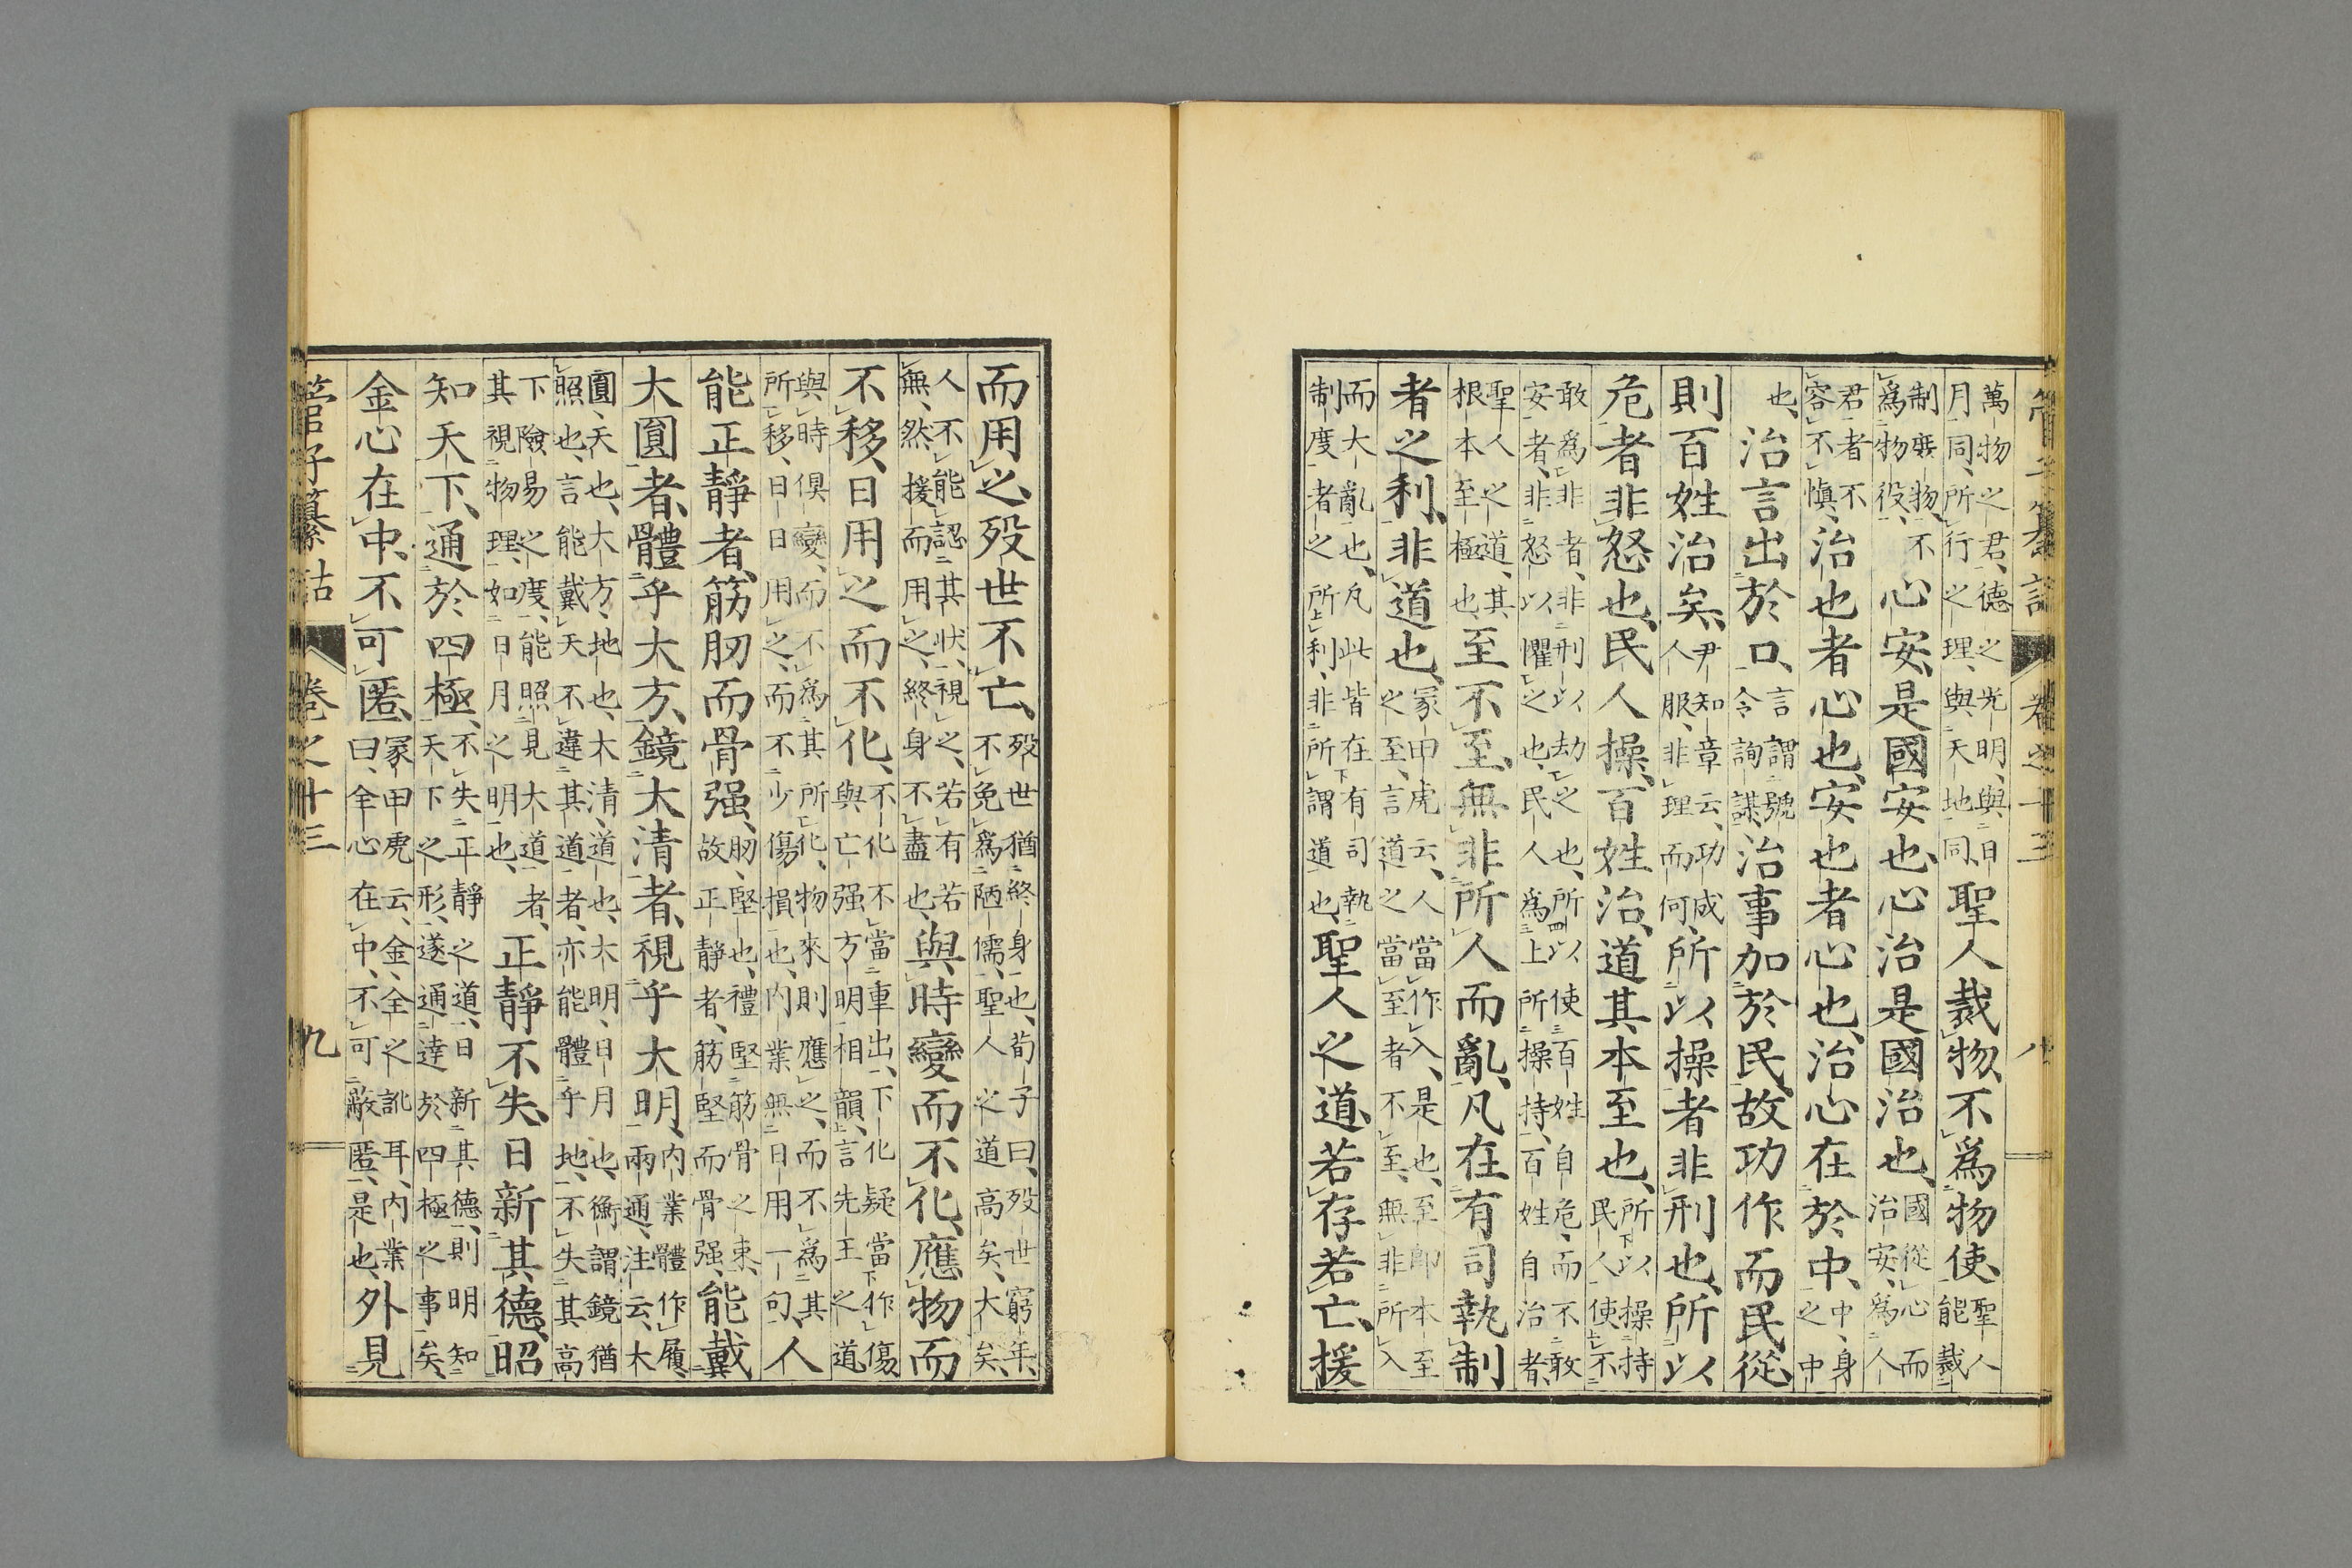 管子纂詁 卷之十三 八
萬物之君、德之光明、與日月同、所行之理、與天地同、聖人裁物、不爲物使、聖人能裁
制裁物、不爲物役、心安、是國安也、心治是國治也、國從心而治安、爲人
君者不容不愼、治也者心也、安也者心也、治心在於中、中、身之中
也、治言出於口、言謂號令詢謀、治事加於民、故功作而民從、
則百姓治矣、尹知章云、功成人服、非理而何、所以操者非刑也、所以
危者非怒也、民人操、百姓治、道其本至也、所以操持民人使不
敢爲非者、非刑以劫之也、所以使百姓自危、而不敢安者、非怒以懼之也、民人爲上所操持、百姓自治者、
聖人之道、其根本至極也、至不至、無非所人而亂、凡在有司執制
者之利、非道也、冢田虎云、人當作入、是也、至卽本至之至、言道之當至者不至、無非所入
而大亂也、凡此皆在有司執制度者之所利、非所謂道也、聖人之道、若存若亡、援
而用之、歿世不亡、歿世猶終身也、荀子曰、歿世窮年、不免爲陋儒、聖人之道高矣、大矣、
人不能認其狀、視之、若有若無、然援而用之、終身不盡也、與時變而不化、應物而
不移、日用之而不化、不化不當重出、下化疑當作傷與亡强方明相韻、言先王之道
與時俱變、而不爲其所化、物來則應之、而不爲其所移、日日用之、而不少傷損也、内業無日用一句、人
能正靜者、筋肕而骨强、肕、堅也、禮堅筋骨之束、故正靜者、筋堅而骨强、能戴
大圓者、體乎大方、鏡大清者、視乎大明、内業體作履、兩通、注云、大
圓、天也、大方、地也、大清、道也、大明、日月也、衡謂鏡猶照也、言能戴天不違其道者、亦能體乎地、不失其高
下險易之度、能照見大道者、其視物理、如日月之明也、正靜不失、日新其德、昭
知天下、通於四極、不失正靜之道、日新其德、則明知天下之形、遂通達於四極之事矣、
金心在中、不可匿、冢田虎云、金、全之訛耳、内業曰、全心在中、不可蔽匿、是也、外見
管子纂詁 卷之十三 九